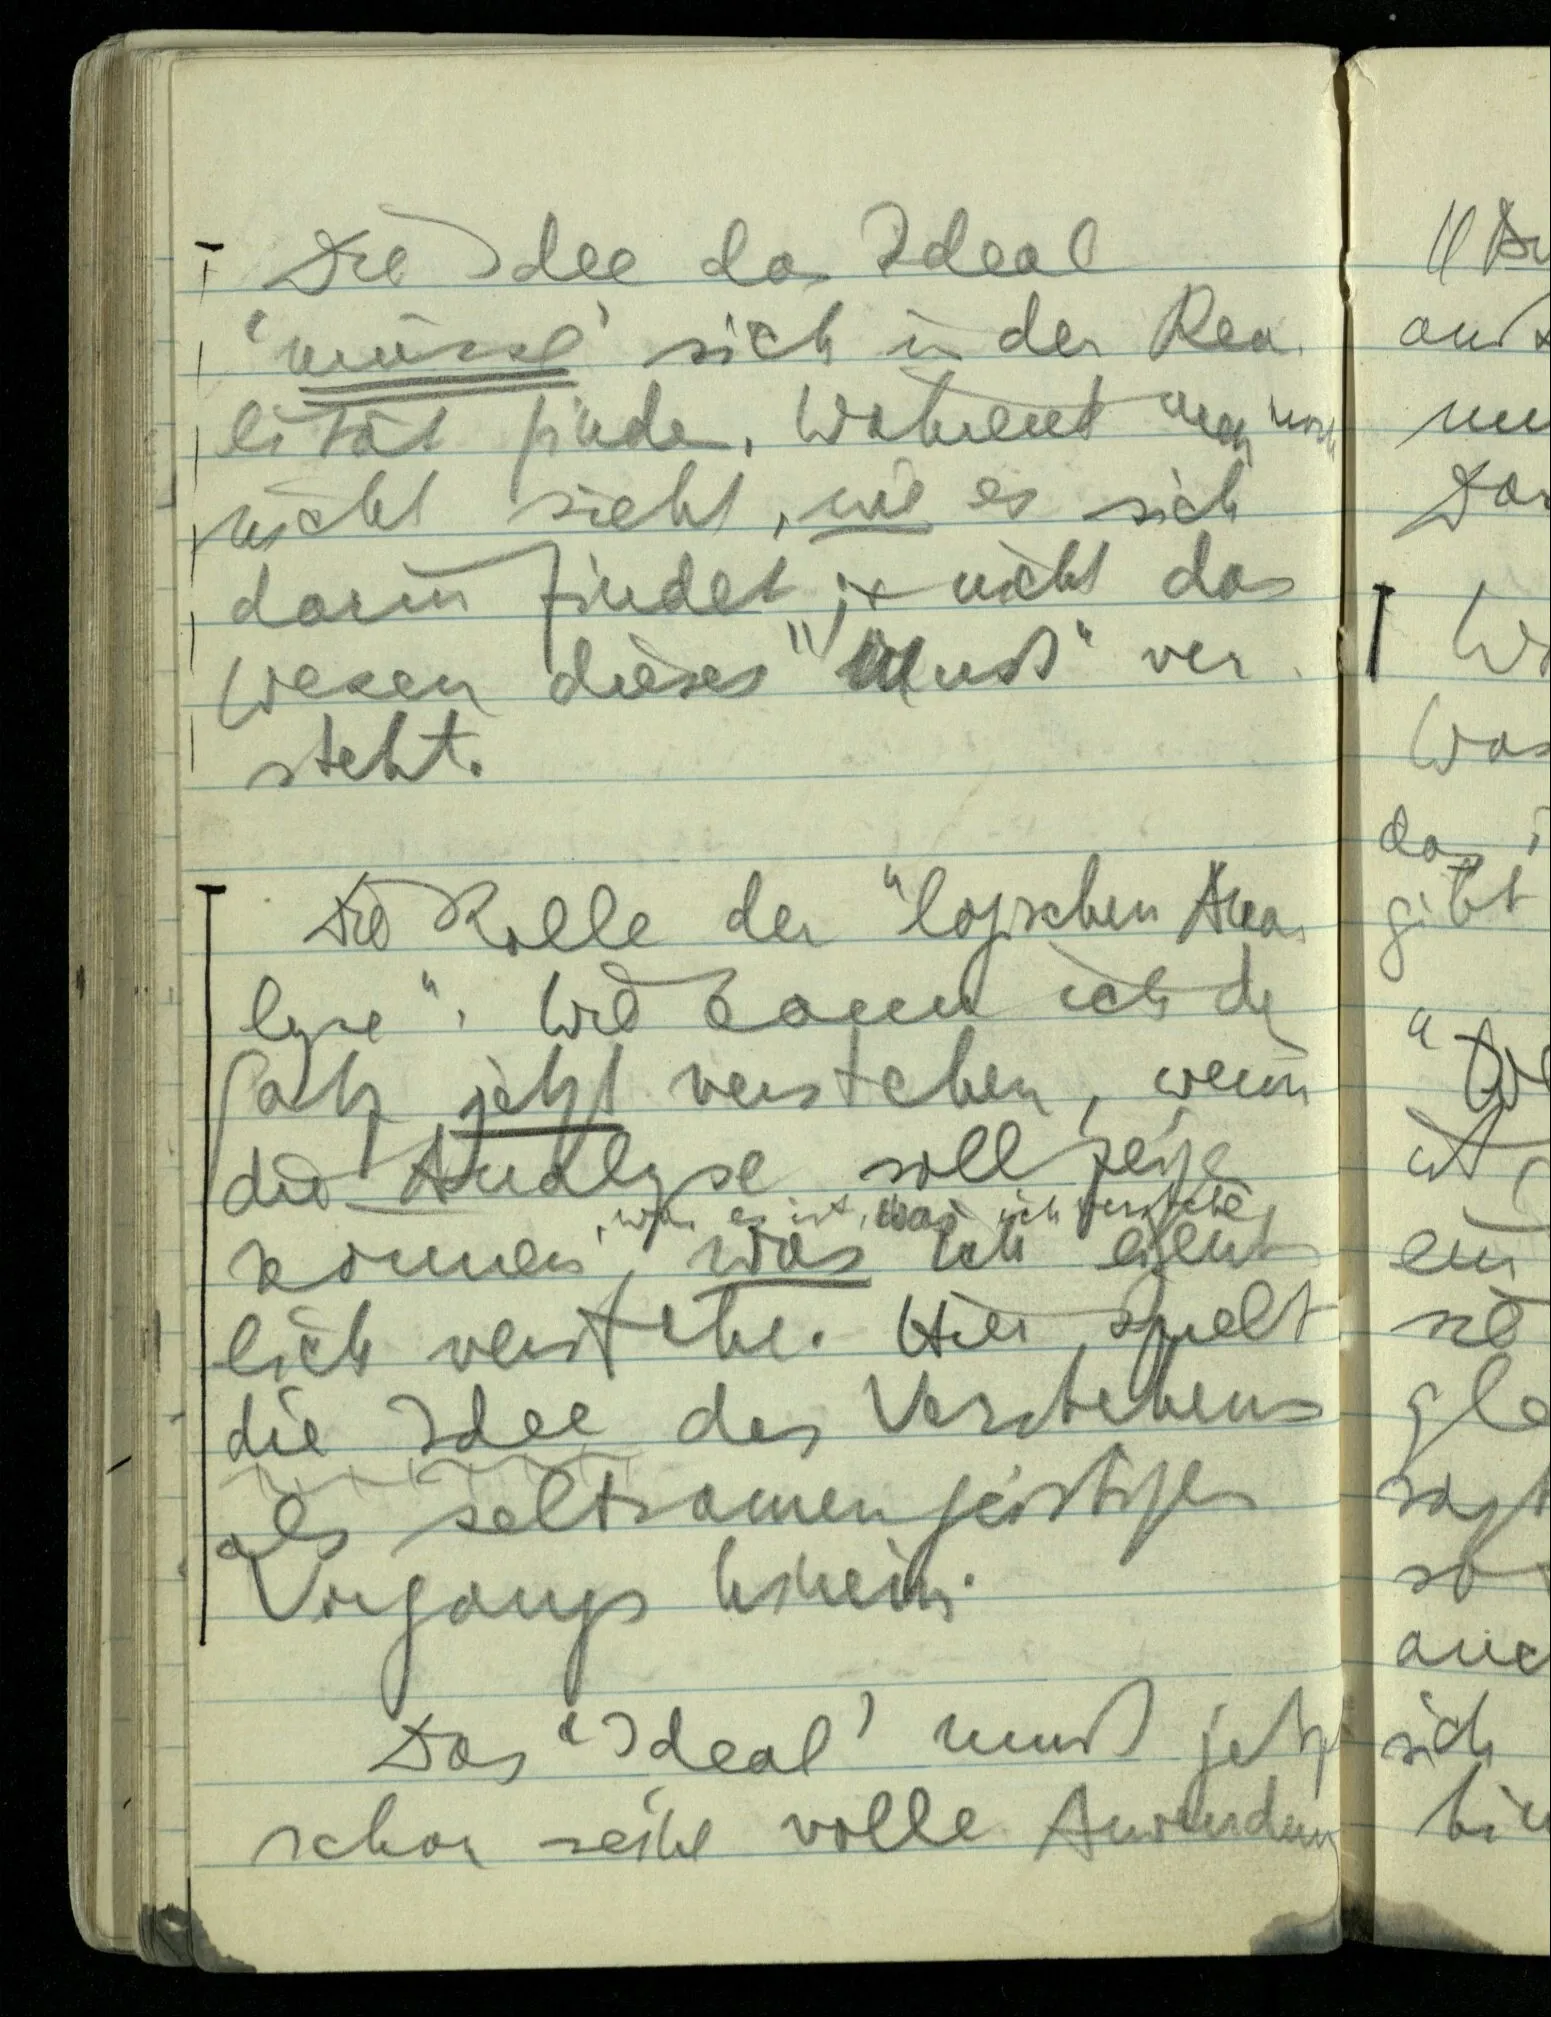 Die Idee das Ideal
'müsse' sich in der Rea-
lität finden. Während man noch
nicht sieht, wie es sich
darin findet, & nicht das
Wesen dieses "Muß" ver-
steht.
Die Rolle der "logischen Ana-
lyse". Wie kann ich den
Satz jetzt verstehen, wenn
die Analyse soll zeigen
, was es ist, was ich verstehe,
können, was ich eigent-
lich verstehe. Hier spielt
die Idee des Verstehens
als seltsamen geistigen
Vorgangs hinein.
Das 'Ideal' muß jetzt
schon seine volle Anwendung
ist
ein
gibt
sagt
so
sich